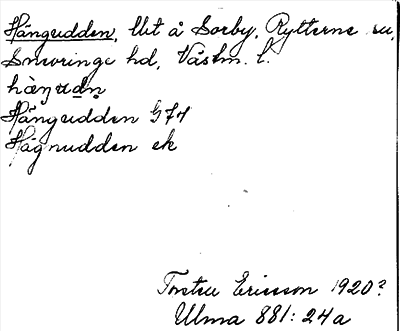 Hängudden, Ut å Sorby, Rytterne sn,
Snevringe hd, Västm. l.
häŋudn
Hängudden G74
Hägnudden ek
Torsten Ericsson 1920?
Ulma 881:24a